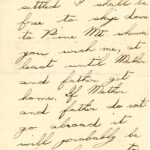 settled I shall be
free to skip down
to Pine Mt. whenever
you wish me, at
least until Mother
and father get
home. If Mother
and father do not
go abroad it
will porobably be